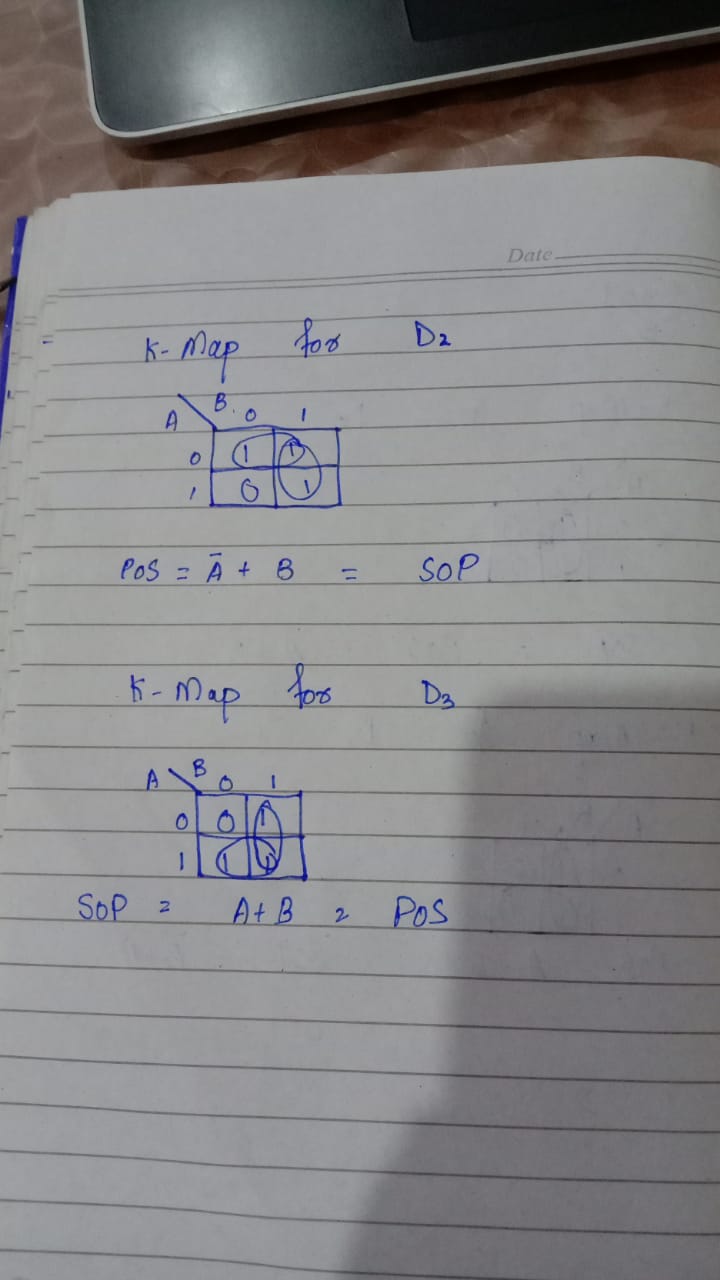 Date
K-Map for D2
B 0 1
A
0 1 1
1 0 1
POS = Ā + B = SOP
K-Map for D3
A B 0 1
0 0 1
1 1 1
SOP = A+B = POS